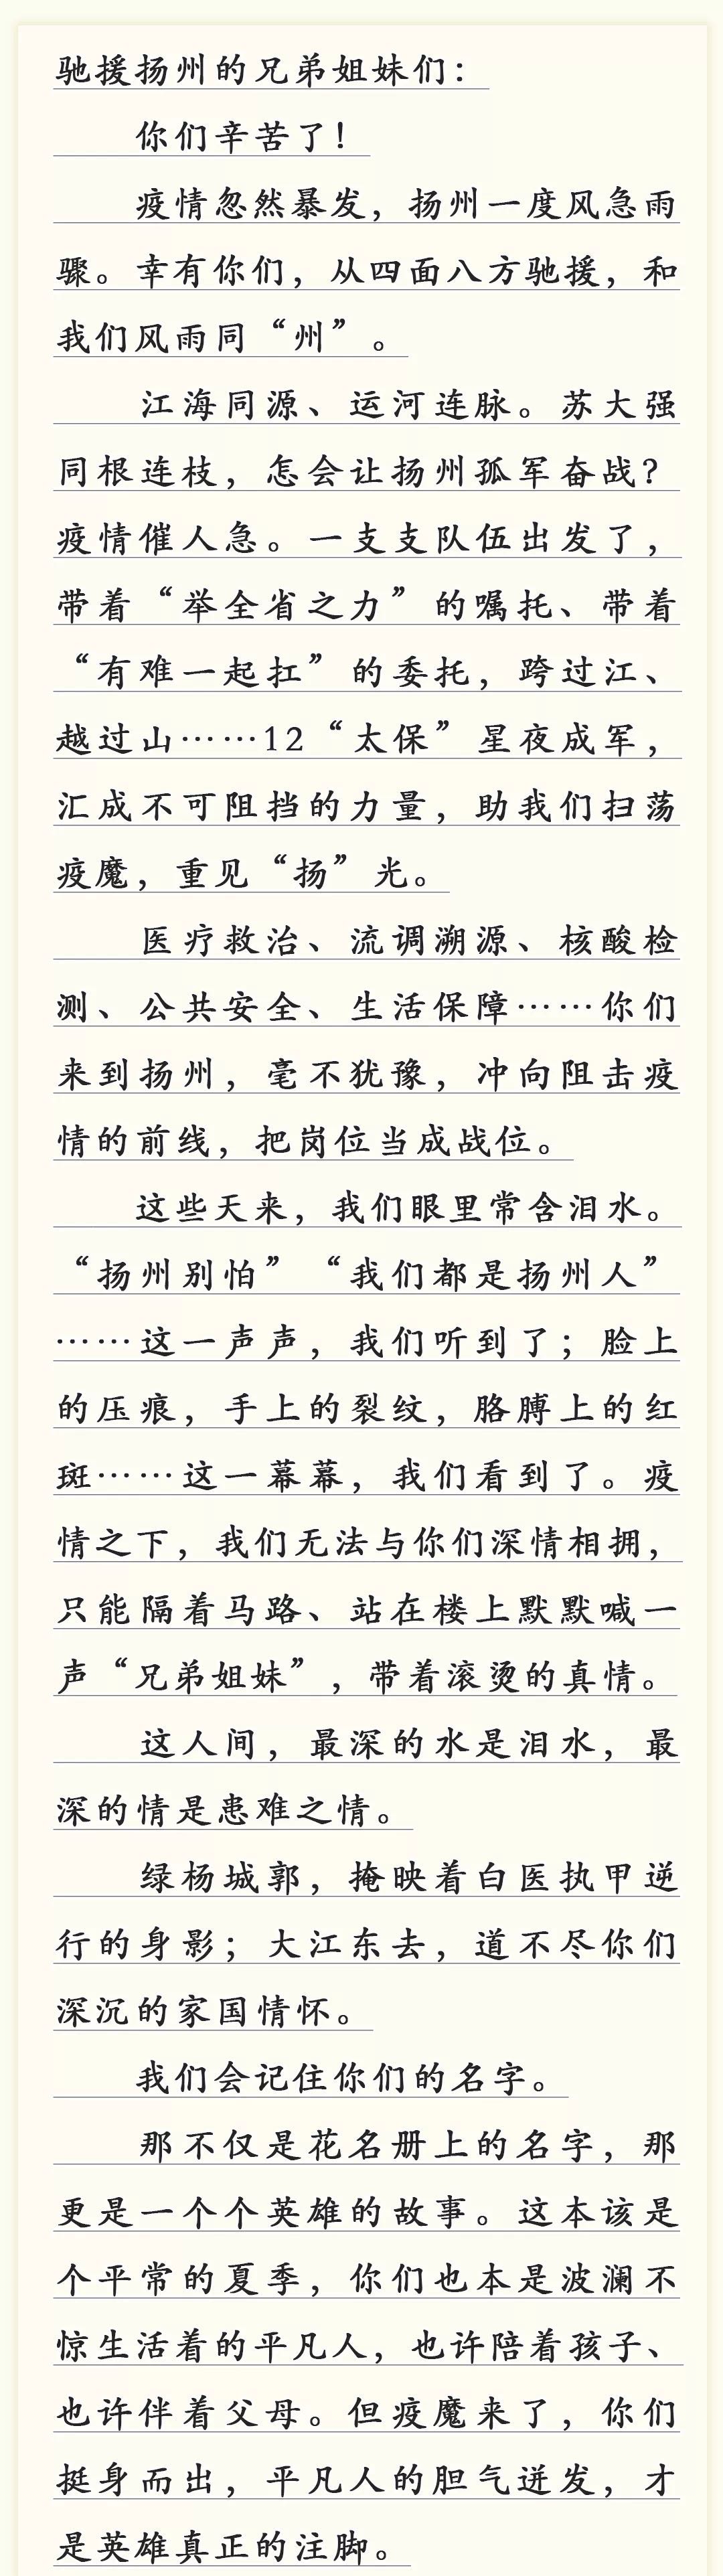 驰援扬州的兄弟姐妹们：
你们辛苦了！
疫情忽然暴发，扬州一度风急雨
骤。幸有你们，从四面八方驰援，和
我们风雨同“州”。
江海同源、运河连脉。苏大强
同根连枝，怎会让扬州孤军奋战？
疫情催人急。一支支队伍出发了，
带着“举全省之力”的嘱托、带着
“有难一起扛”的委托，跨过江、
越过山……12“太保”星夜成军，
汇成不可阻挡的力量，助我们扫荡
疫魔，重见“扬”光。
医疗救治、流调溯源、核酸检
测、公共安全、生活保障……你们
来到扬州，毫不犹豫，冲向阻击疫
情的前线，把岗位当成战位。
这些天来，我们眼里常含泪水。
“扬州别怕”“我们都是扬州人”
……这一声声，我们听到了；脸上
的压痕，手上的裂纹，胳膊上的红
斑……这一幕幕，我们看到了。疫
情之下，我们无法与你们深情相拥，
只能隔着马路、站在楼上默默喊一
声“兄弟姐妹”，带着滚烫的真情。
这人间，最深的水是泪水，最
深的情是患难之情。
绿杨城郭，掩映着白医执甲逆
行的身影；大江东去，道不尽你们
深沉的家国情怀。
我们会记住你们的名字。
那不仅是花名册上的名字，那
更是一个个英雄的故事。这本该是
个平常的夏季，你们也本是波澜不
惊生活着的平凡人，也许陪着孩子、
也许伴着父母。但疫魔来了，你们
挺身而出，平凡人的胆气迸发，才
是英雄真正的注脚。